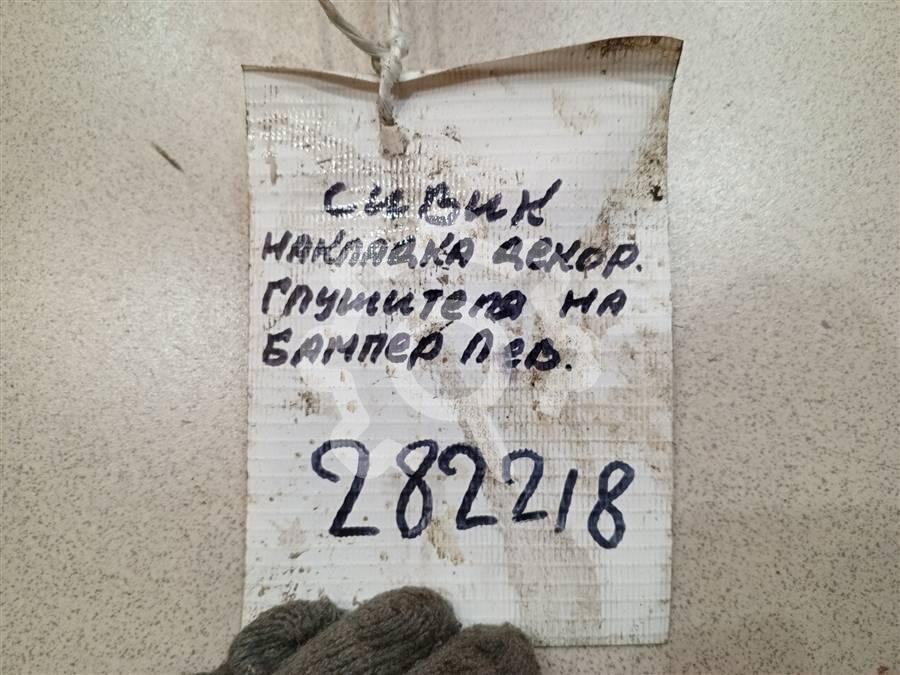 СИВИК
НАКЛАДКА ДЕКОР.
ГЛУШИТЕЛЯ НА
БАМПЕР ЛЕВ.
282218